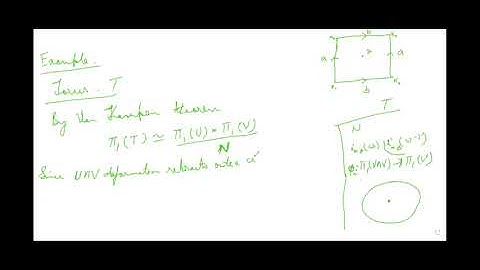 Example.
Torus. T
By Van Kampen theorem
π₁(T) ≃ π₁(U) * π₁(V)
N
Since U∩V deformation retracts onto a
b
a
a
b
T
N
π₁(U∩V) → π₁(V)